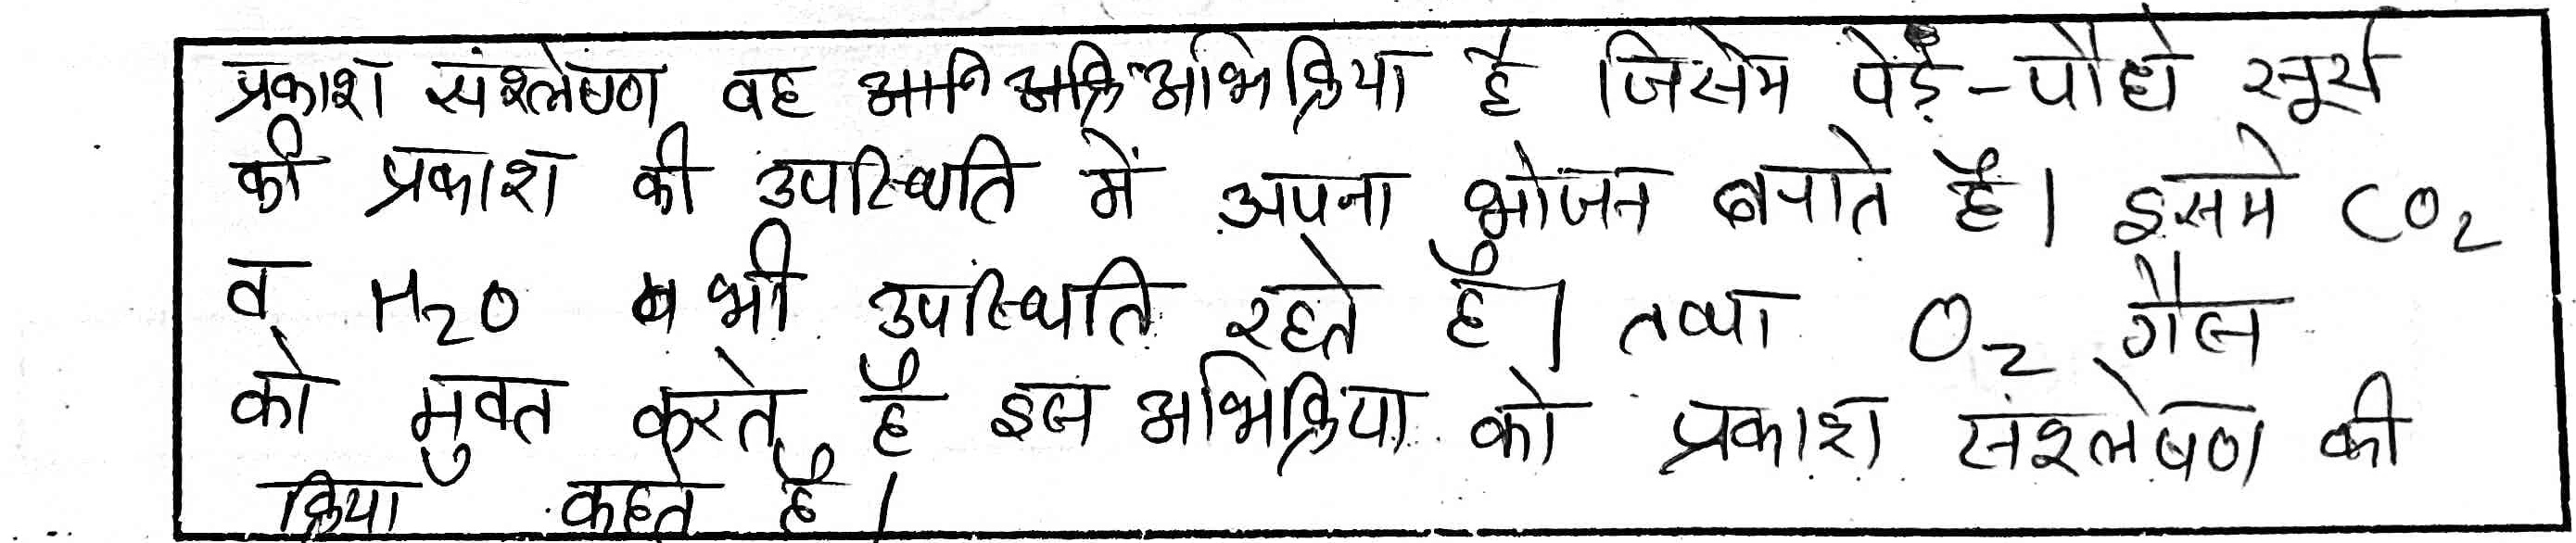 प्रकाश संश्लेषण वह अभिक्रिया है जिसेम पेड़-पौधे सूर्य
की प्रकाश की उपस्थिति में अपना भोजन बनाते है। इसमे CO₂
व H₂O भी उपस्थिति रहते है। तथा O₂ गैस
को मुक्त करते है इस अभिक्रिया को प्रकाश संश्लेषण की
क्रिया कहते है।